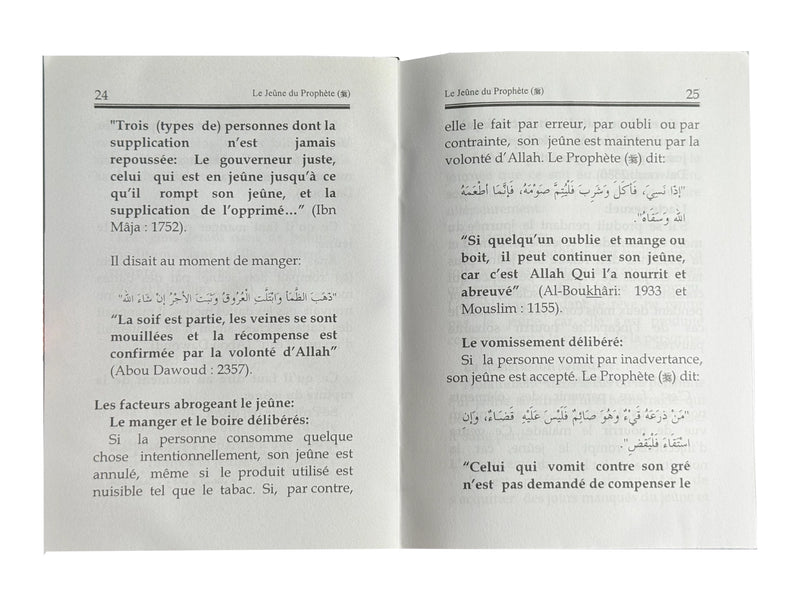 24 Le Jeûne du Prophète (ﷺ)
"Trois (types de) personnes dont la
supplication n'est jamais
repoussée: Le gouverneur juste,
celui qui est en jeûne jusqu'à ce
qu'il rompt son jeûne, et la
supplication de l'opprimé…" (Ibn
Mâja : 1752).
Il disait au moment de manger:
"ذَهَبَ الظَّمَأُ وَابْتَلَّتِ الْعُرُوقُ وَثَبَتَ الْأَجْرُ إِنْ شَاءَ اللَّهُ"
“La soif est partie, les veines se sont
mouillées et la récompense est
confirmée par la volonté d’Allah”
(Abou Dawoud : 2357).
Les facteurs abrogeant le jeûne:
Le manger et le boire délibérés:
Si la personne consomme quelque
chose intentionnellement, son jeûne est
annulé, même si le produit utilisé est
nuisible tel que le tabac. Si, par contre,
Le Jeûne du Prophète (ﷺ) 25
elle le fait par erreur, par oubli ou par
contrainte, son jeûne est maintenu par la
volonté d’Allah. Le Prophète (ﷺ) dit:
"إِذَا نَسِيَ، فَأَكَلَ وَشَرِبَ فَلْيُتِمَّ صَوْمَهُ، فَإِنَّمَا أَطْعَمَهُ
اللَّهُ وَسَقَاهُ".
“Si quelqu’un oublie et mange ou
boit, il peut continuer son jeûne,
car c’est Allah Qui l’a nourrit et
abreuvé” (Al-Boukhâri: 1933 et
Mouslim : 1155).
Le vomissement délibéré:
Si la personne vomit par inadvertance,
son jeûne est accepté. Le Prophète (ﷺ) dit:
"مَنْ ذَرَعَهُ قَيْءٌ وَهُوَ صَائِمٌ فَلَيْسَ عَلَيْهِ قَضَاءٌ، وَإِنِ
اسْتَقَاءَ فَلْيَقْضِ".
“Celui qui vomit contre son gré
n’est pas demandé de compenser le